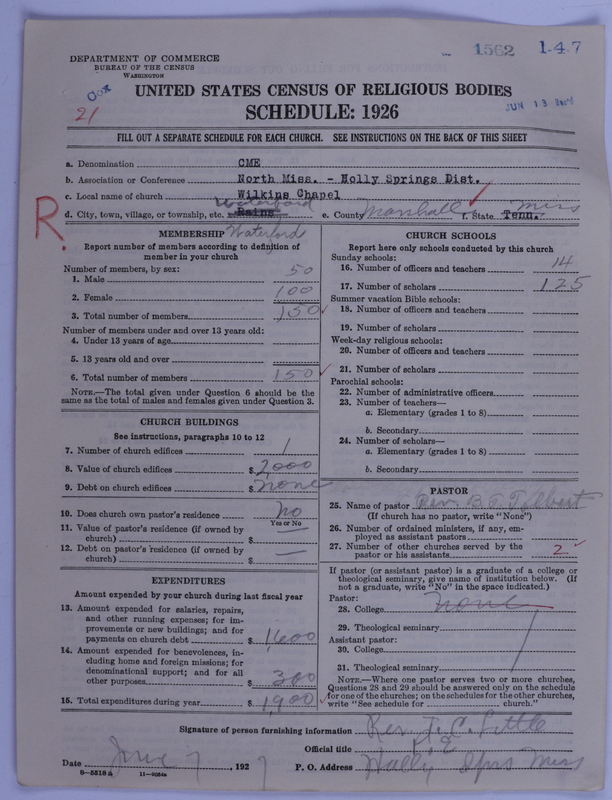 1562 1-4-7
DEPARTMENT OF COMMERCE
BUREAU OF THE CENSUS
WASHINGTON
Cox
21
UNITED STATES CENSUS OF RELIGIOUS BODIES
JUN 13
SCHEDULE: 1926
FILL OUT A SEPARATE SCHEDULE FOR EACH CHURCH. SEE INSTRUCTIONS ON THE BACK OF THIS SHEET
a. Denomination CME
b. Association or Conference North Miss. - Holly Springs Dist.
c. Local name of church Wilkins Chapel
d. City, town, village, or township, etc. Waterford Rains e. County Marshall f. State Tenn. Miss
R.
MEMBERSHIP Waterford
Report number of members according to definition of
member in your church
Number of members, by sex:
1. Male 50
2. Female 100
3. Total number of members 150
Number of members under and over 13 years old:
4. Under 13 years of age
5. 13 years old and over
6. Total number of members 150
NOTE.—The total given under Question 6 should be
same as the total of males and females given under Question 3.
CHURCH BUILDINGS
See instructions, paragraphs 10 to 12
7. Number of church edifices 1
8. Value of church edifices $ 2000
9. Debt on church edifices $ none
10. Does church own pastor's residence? No
Yes or No
11. Value of pastor's residence (if owned by
church) $ —
12. Debt on pastor's residence (if owned by
church) $ —
EXPENDITURES
Amount expended by your church during last fiscal year
13. Amount expended for salaries, repairs,
and other running expenses; for im-
provements or new buildings; and for
payments on church debt $ 1600
14. Amount expended for benevolences, in-
cluding home and foreign missions; for
denominational support; and for all
other purposes $ 300
15. Total expenditures during year $ 1900
CHURCH SCHOOLS
Report here only schools conducted by this church
Sunday schools:
16. Number of officers and teachers 14
17. Number of scholars 125
Summer vacation Bible schools:
18. Number of officers and teachers
19. Number of scholars
Week-day religious schools:
20. Number of officers and teachers
21. Number of scholars
Parochial schools:
22. Number of administrative officers
23. Number of teachers—
a. Elementary (grades 1 to 8)
b. Secondary
24. Number of scholars—
a. Elementary (grades 1 to 8)
b. Secondary
PASTOR
25. Name of pastor Rev. B. T. Tolbert
(If church has no pastor, write "None")
26. Number of ordained ministers, if any, em-
ployed as assistant pastors
27. Number of other churches served by the
pastor or his assistants 2
If pastor (or assistant pastor) is a graduate of a college or
theological seminary, give name of institution below. (If
not a graduate, write "No" in the space indicated.)
Pastor:
28. College none
29. Theological seminary
Assistant pastor:
30. College
31. Theological seminary
NOTE.—Where one pastor serves two or more churches,
Questions 28 and 29 should be answered only on the schedule
for one of the churches; on the schedules for the other churches,
write "See schedule for church."
Signature of person furnishing information Rev. J. C. Little
Official title P. E
Date June 7, 1927 P. O. Address Holly Sprs Miss
8—5518a 11—9054a